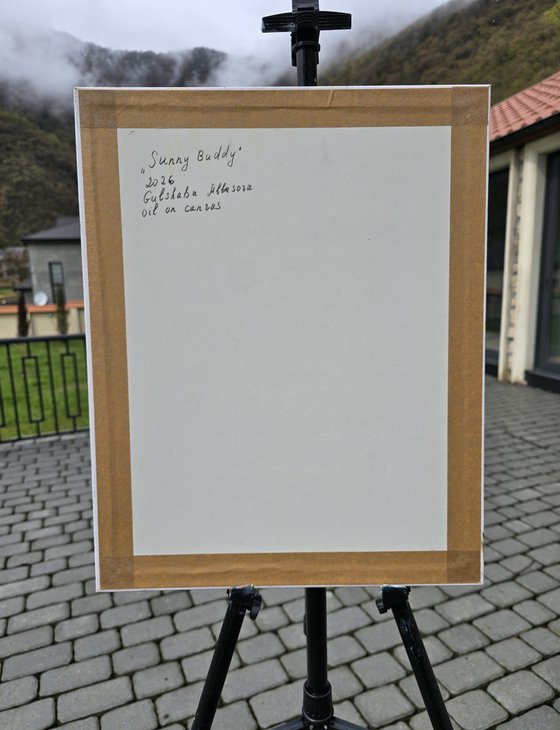 „Sunny Buddy"
2026
Gulshaba Abbasova
oil on canvas